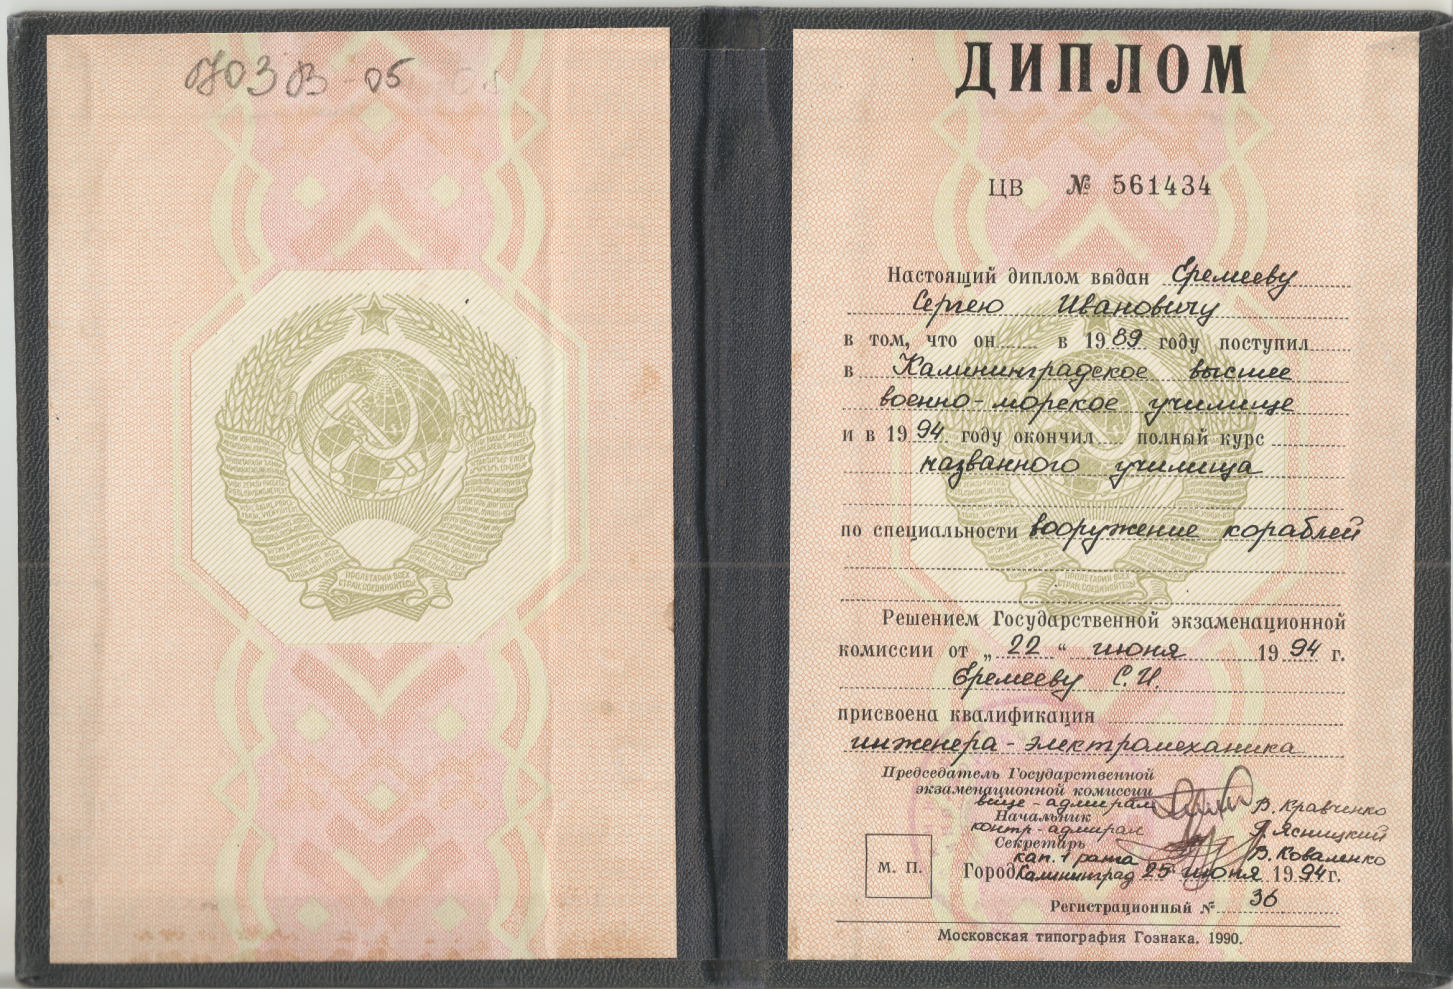 ДИПЛОМ
ЦВ № 561434
Настоящий диплом выдан Еремееву
Сергею Ивановичу
в том, что он в 1989 году поступил
в Калининградское высшее
военно-морское училище
и в 1994 году окончил полный курс
названного училища
по специальности вооружение кораблей
Решением Государственной экзаменационной
комиссии от „22“ июня 1994 г.
Еремееву С.И.
присвоена квалификация
инженера-электромеханика
Председатель Государственной
экзаменационной комиссии
вице-адмирал В. Кравченко
Начальник
контр-адмирал Ясницкий
Секретарь
кап. 1 ранга В. Коваленко
Город Калининград 25 июня 1994 г.
М. П.
Регистрационный № 36
Московская типография Гознака. 1990.
ПРОЛЕТАРИИ ВСЕХ
СТРАН, СОЕДИНЯЙТЕСЬ!